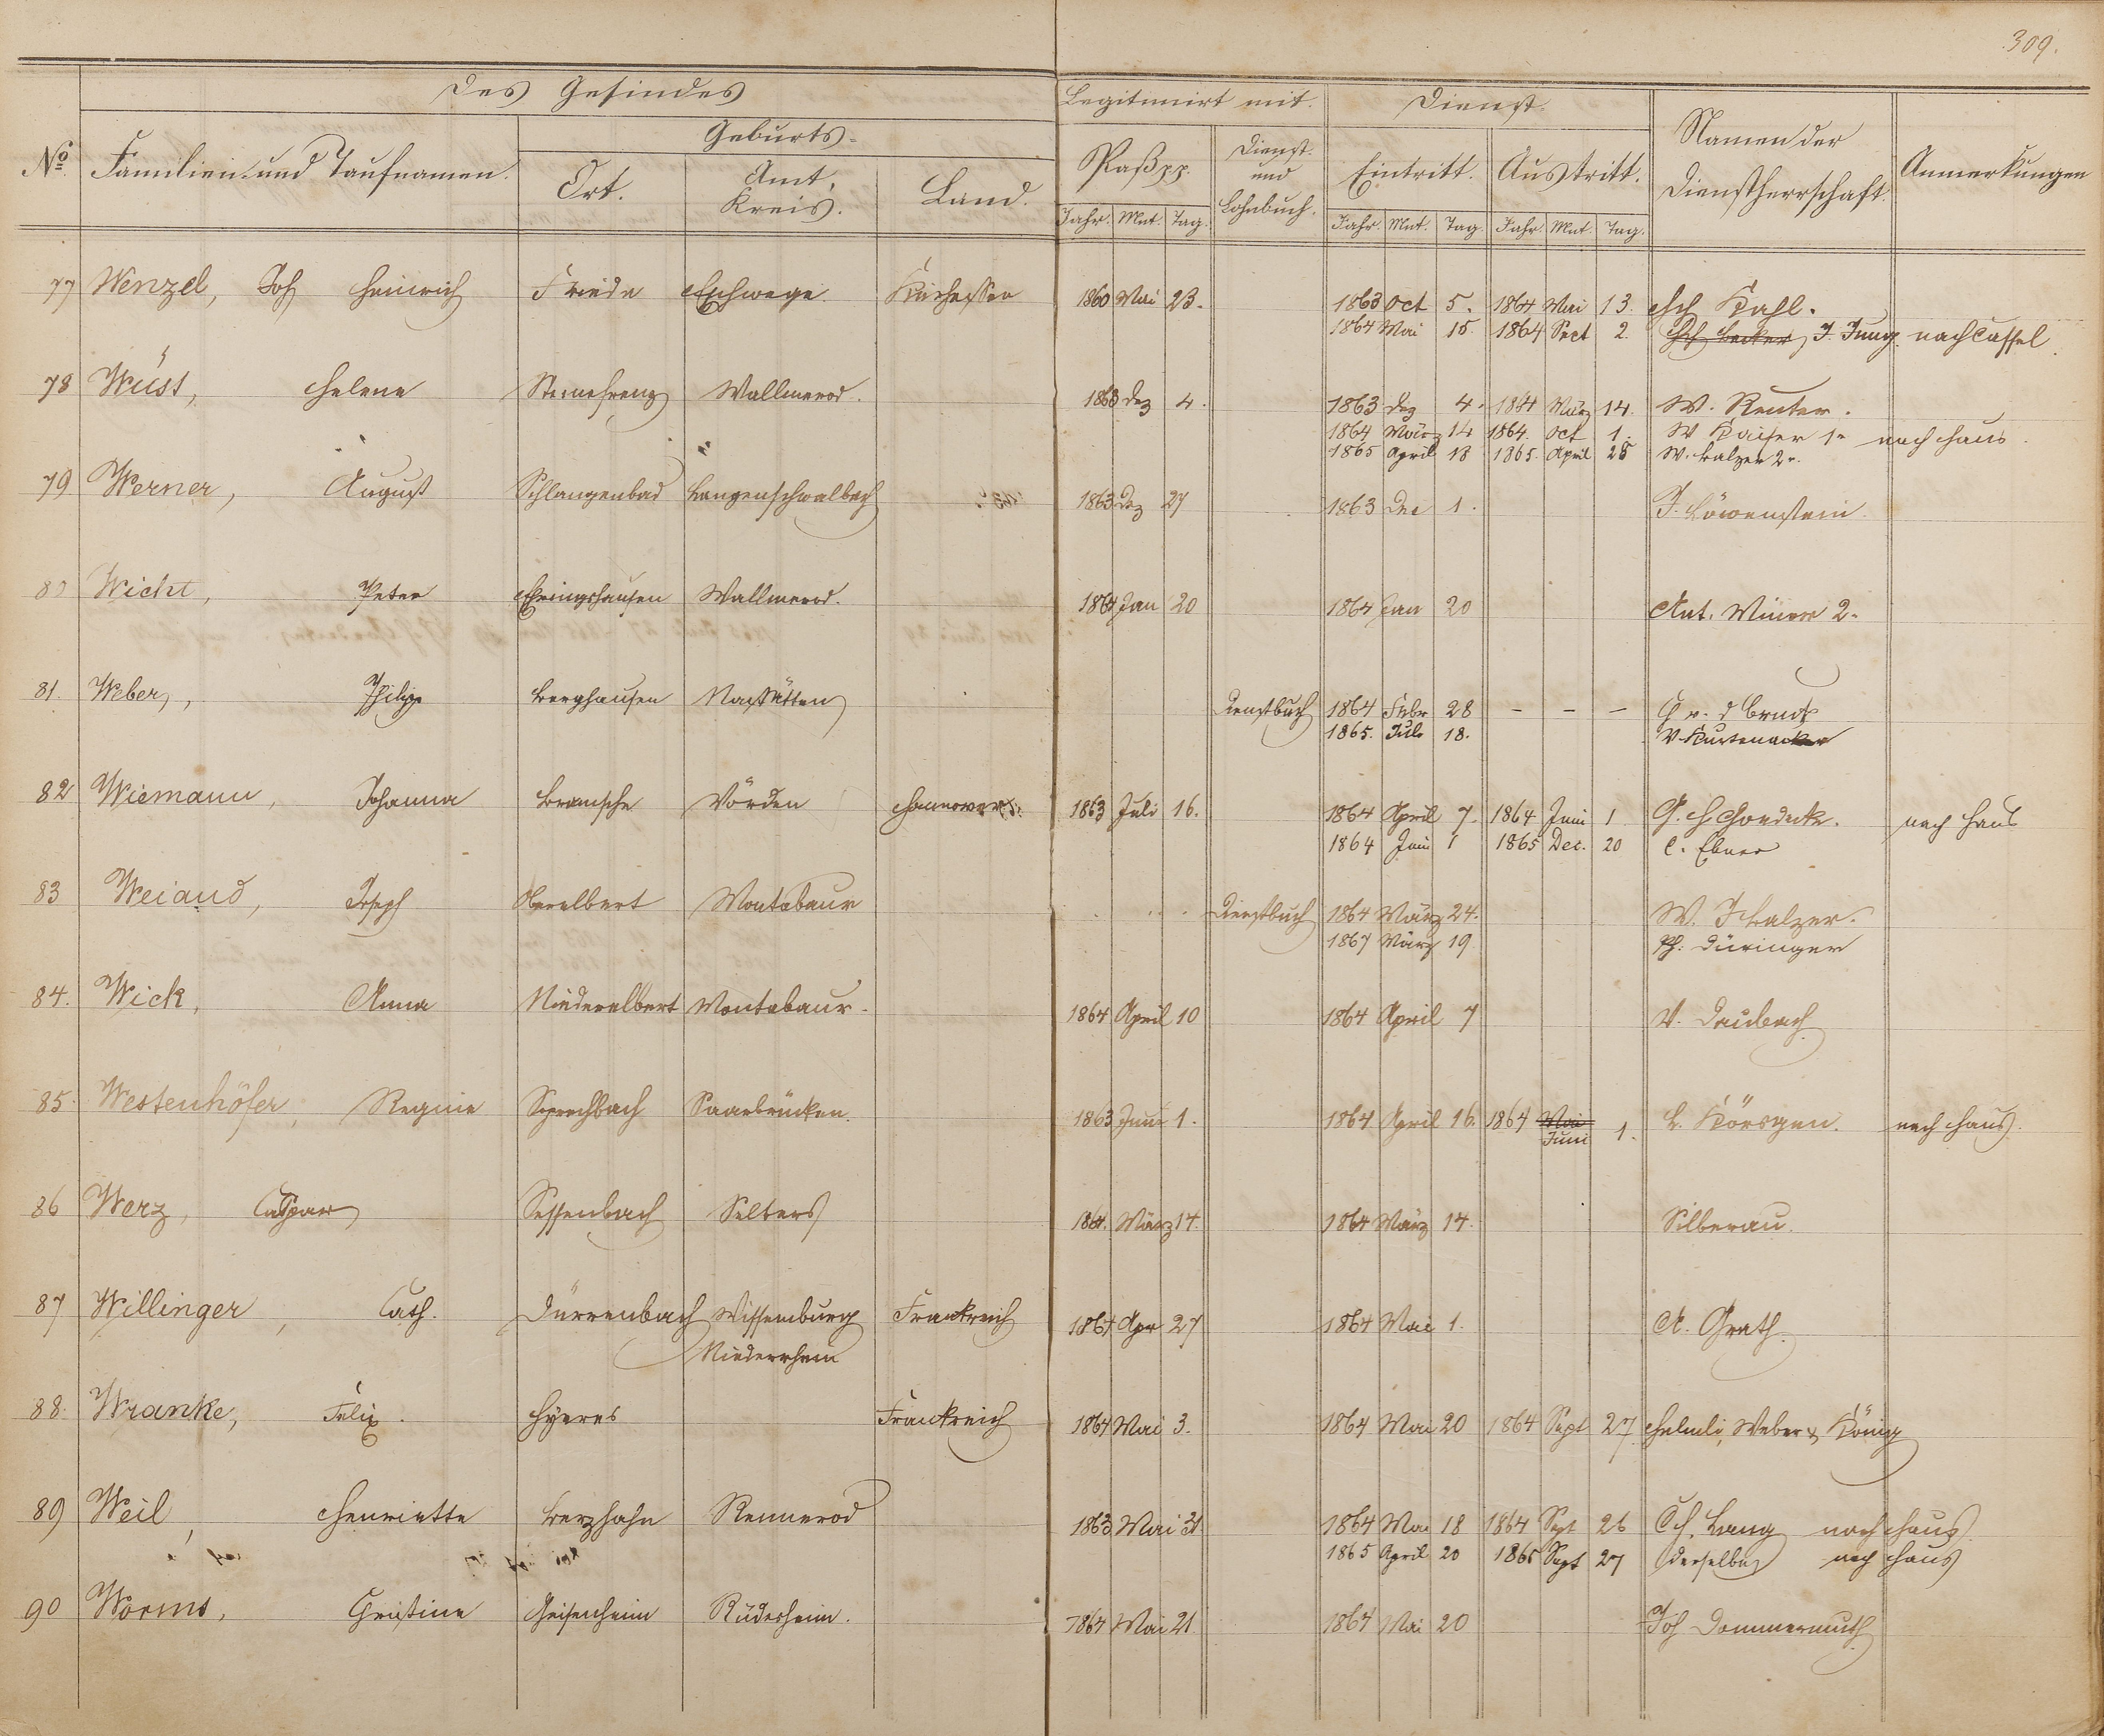 309.
Des Gesindes
Legitimirt mit.
Dienst.
Namen der Dienstherrschaft.
Anmerkungen
No. Familien- und Taufnamen.
Geburts-
Ort. Amt, Kreis. Land.
Paß pp.
Dienst- und Lohnbuch.
Eintritt. Austritt.
Jahr. Mnt. Tag. Jahr. Mnt. Tag. Jahr. Mnt. Tag.
77 Wenzel, Joh Heinrich Frieda Eschwege Kurhessen 1860 Mai 23. 1863 Oct 5. 1864 Mai 13. Kahl.
1864 Mai 15. 1864 Sept 2. Becker, J. Jung. nach Cassel
78 Wüst, Helene Wallmerod. 1863 Dez 4. 1863 Dez 4. 1864 März 14. W. Reuter.
1864 März 14 1864. Oct 1. W Kaiser 1r nach Haus.
1865 April 18 1865. April 25 W. Balzer 2r.
79 Werner, August Schlangenbad Langenschwalbach 1863 Dez 27 1863 Dec 1. J. Löwenstein.
80 Wicht, Peter Ewingshausen Wallmerod. 1864 Jan 20 1864 Jan 20 Ant. 2r
81. Weber, Philipp Berghausen Nastätten Dienstbuch 1864 Febr 28 – – –
1865. Juli 18.
82 Wiemann, Johanna Bramsche Vörden Hannover 1863 Juli 16. 1864 April 7. 1864 Juni 1 G. H. nach Haus
1864 Juni 1 1865 Dec. 20 C. Ebner
83 Weiand, Joseph Oberelbert Montabaur Dienstbuch 1864 März 24. W. J Balzer.
1867 März 19. Ph. Düringer
84. Wick, Anna Niederelbert Montabaur. 1864 April 10 1864 April 7 V. Daubach
85. Westenhöfer, Regine Saarbrücken. 1863 Juni 1. 1864 April 16. 1864 Mai Juni 1. L. Körsgen. nach Haus.
86 Werz, Caspar Sessenbach Selters 1864. März 14. 1864 März 14. Silberau.
87 Willinger, Cath. Dürrenbach Wissemburg Frankreich 1864 Apr 27 1864 Mai 1. A. Grath.
Niederrhein
88. Wranke, Felix. Hyeres Frankreich 1864 Mai 3. 1864 Mai 20 1864 Sept 27. Weber & König
89 Weil, Henriette Berzhahn Rennerod 1863 Mai 31 1864 Mai 18 1864 Sept 26 Ch. Lang nach Haus.
1865 April 20 1865 Sept 27 derselbe nach Haus
90 Worms, Christine Geisenheim Rüdesheim. 1864 Mai 21. 1864 Mai 20 Joh Dommermuth